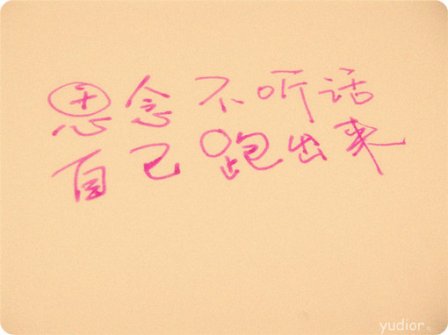 思念不听话
自己跑出来
yudior